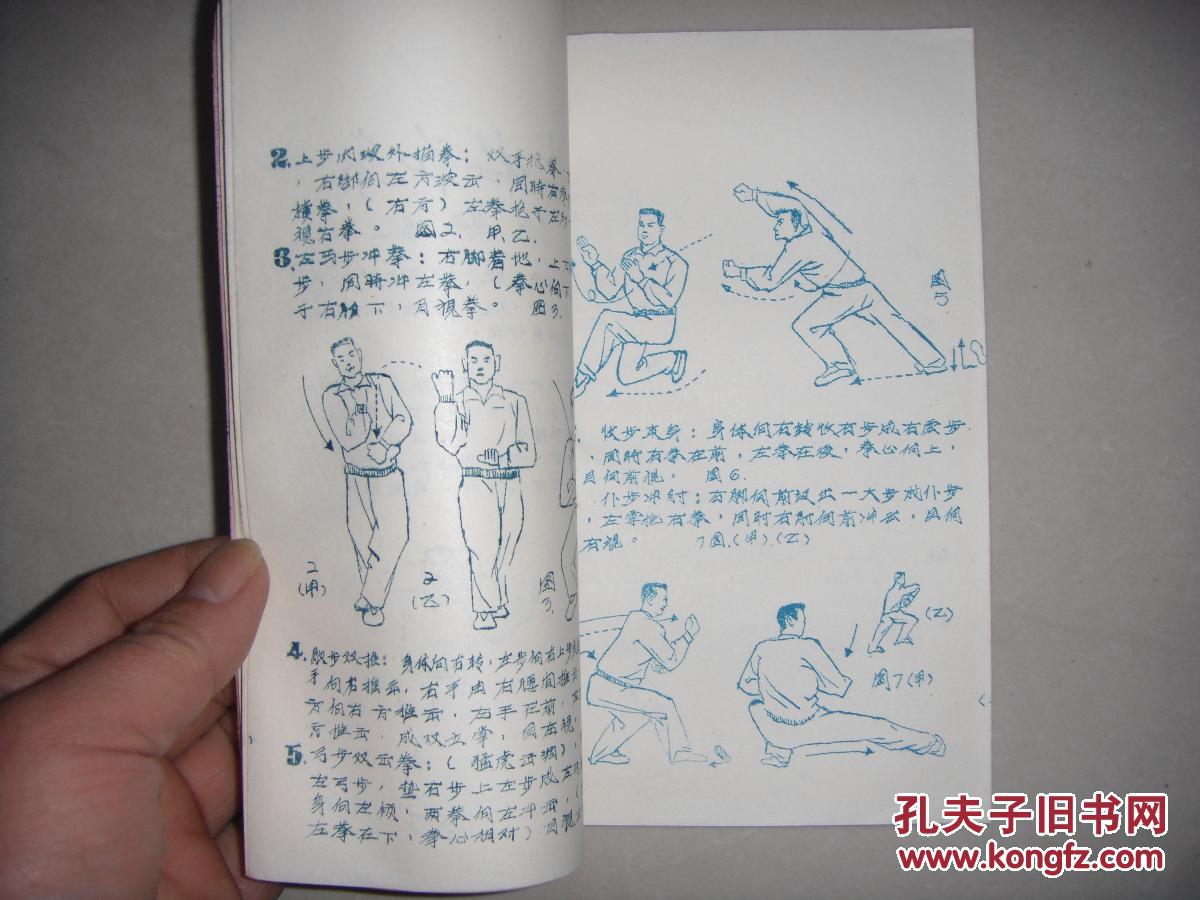 2. 上步内拨外描拳: 双手抱拳
, 右脚向左方波云, 同時右拳
横拳, (右方) 左拳抱于左
視右拳。 图2. 甲.乙.
3. 左马步冲拳: 右脚着地, 上
步, 同時冲左拳, (拳心向下
于右 下, 目視拳。 图3.
2
(甲)
2
(乙)
图
3.
4. 歇步双推: 身体向右转, 左步向右上步
手向右推云, 右手由右腰间推云
方向右方推云, 左手在前,
推云, 成双立掌, 目左視.
5. 弓步双云拳: (猛虎云洞),
左弓步, 垫右步上左步成左弓
身向左倾, 两拳向左冲云, (
左拳在下, 拳心相对) 目視
图
5
收步 身: 身体向右转收右步成右虚步
, 同時右拳在前, 左拳在後, 拳心向上,
目向前視。 图6.
仆步冲肘: 右脚向前 出一大步成仆步
, 左掌抱右拳, 同时右肘向前冲云, 目向
右視。 7图.(甲).(乙)
(乙)
图7(甲)
孔夫子旧书网
www.kongfz.com